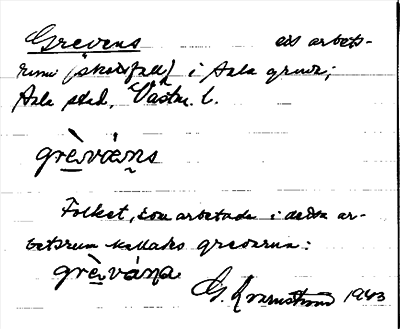 Grevens ett arbets-
rum (skotsfall) i Sala gruva,
Sala stad, Västm. l.
grèváns
Folket, som arbetade i detta ar-
betsrum kallades grevarna:
grèváṇa
G. Kvarnström 1943